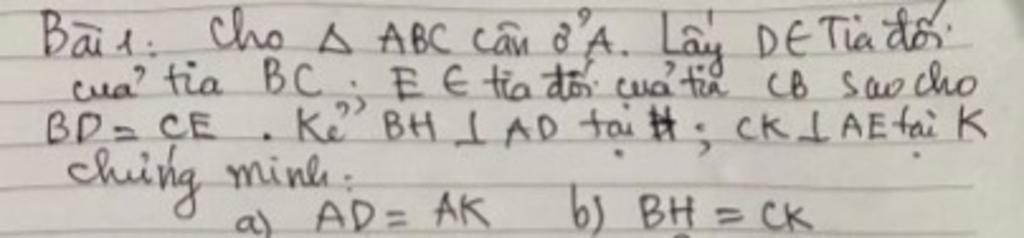 Bài 1: Cho Δ ABC cân ở A. Lấy D ∈ Tia đối
cuả tia BC ; E ∈ tia đối cuả tia CB sao cho
BD = CE . Kẻ BH ⊥ AD tại H ; CK ⊥ AE tại K
chứng minh:
a) AD = AK b) BH = CK